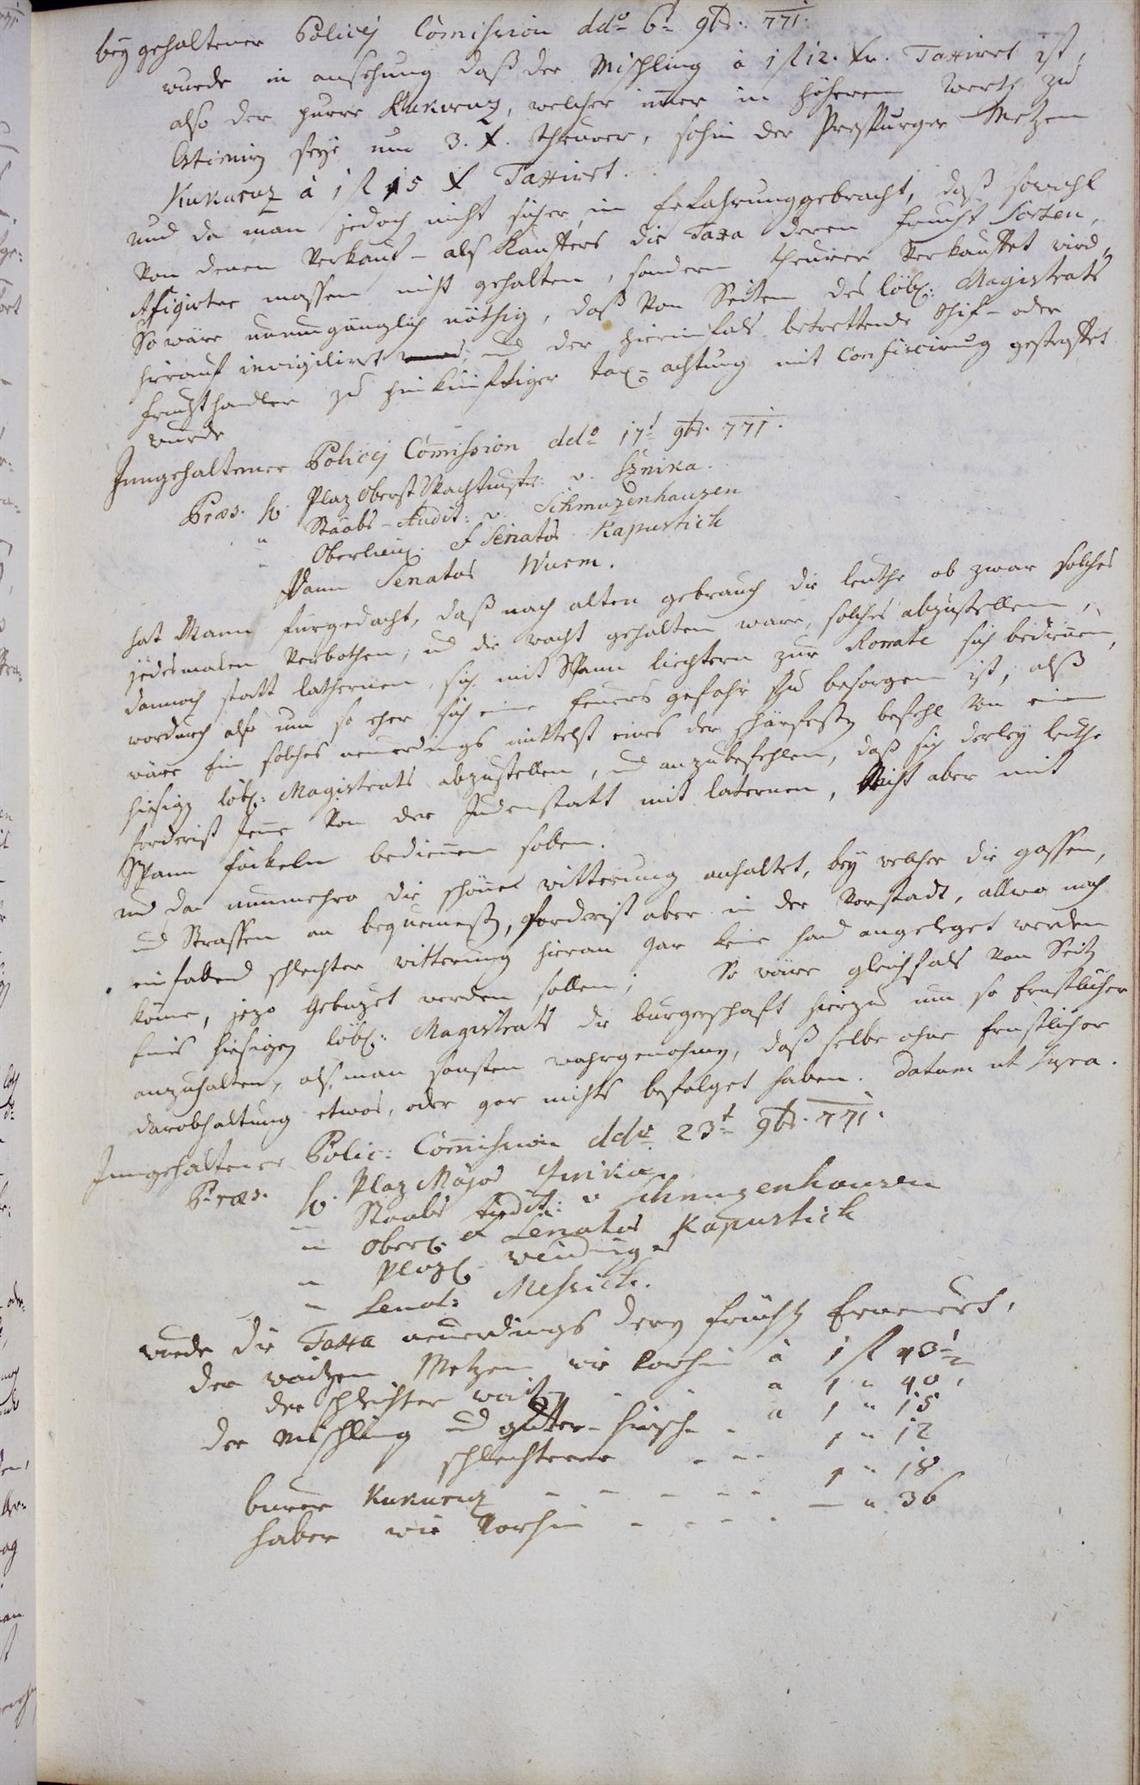 bey gehaltener Policey Comission dd̲o 6t 9br. 771.
wurde in ansehung daß der Mischling à 1 f 12. Xr. Taxiret ist,
also der purre Kukuruz, welcher imer in höheren Werth zu
seye um 3. X. theurer, sohin der Prespurger Metzen
Kukuruz à 1 f 15 X Taxiret.
und da man jedoch nicht sicher, in Erfahrung gebracht, daß sowohl
von denen Verkauf- als Kauffers die Taxa deren Frucht Sorten,
Afigirter massen nicht gehalten, sondern theurer verkauffet wird,
So wäre unumgänglich nöthig, daß von Seiten des löbl: Magistrats
hierauf invigiliret und der hierinfals betrettende Schif- oder
Fruchthandler zu hinkünftiger tax-achtung mit Confiscirung gestraffet
wurde
Inngehaltener Policey Comission dd̲o 17t 9br. 771.
Præs. H. Plaz Obrist Wachtmstr: v. Sznika.
" Staabs-Audit: v. Schmuzenhausen
" Oberlieut. & Senator Kapustich
Dann Senator Wurm.
hat Mann fürgedacht, daß nach alten gebrauch die leuthe ob zwar solches
jedesmalen verbothen, und die wacht gehalten ware, solches abzustellen,
dannoch statt lathernen, sich mit Spann liechtern zur Rorate sich bedienen,
wordurch also um so eher sich eine feuers gefahr zu besorgen ist, alß
wäre Ein solches neuerdings mittelst eines der schärfesten befehl von ein
hiesigen löbl: Magistrats abzustellen, und anzubefehlen, daß sich derley leuthe
forderist Jene von der Judenstatt mit laternen, Nicht aber mit
Spann fackeln bedienen sollen.
und da nunmehro die schöne witterung anhaltet, bey welcher die gassen,
und Strassen am bequemesten, forderist aber in der Vorstadt, allwo nach
einfalend schlechter witterung hieran gar keine hand angeleget werden
könne, jezo Gebuzet werden sollen; So wäre gleichfals von Seiten
Eines hiesigen löbl: Magistrats die burgerschaft hierzu um so Ernstlicher
anzuhalten, als man sonsten wahrgenohmen, daß selbe ohne Ernstlicher
darobhaltung etwas, oder gar nichts befolget haben. Datum ut supra.
Inngehaltener Polic: Comission dd̲o 23t 9br. 771.
Præs. H. Plaz Major Sznika
" Staabs Audit: v Schmuzenhausen
" Oberl. & Senator Kapustich
" Plazl. Weidinger
" Senat:
wurde die Taxa neuerdings deren früchten Erneuert,
der waitzen Metzen wie vorhin à 1 f 43 ½
der schlechter waitz - - a 1 " 40.
der Mischling und guter-hirsch - a 1 " 15
schlechterer - - - 1 " 12
burer Kukuruz - - - - - 1 " 18
haber wie vorhin - - - - — " 36